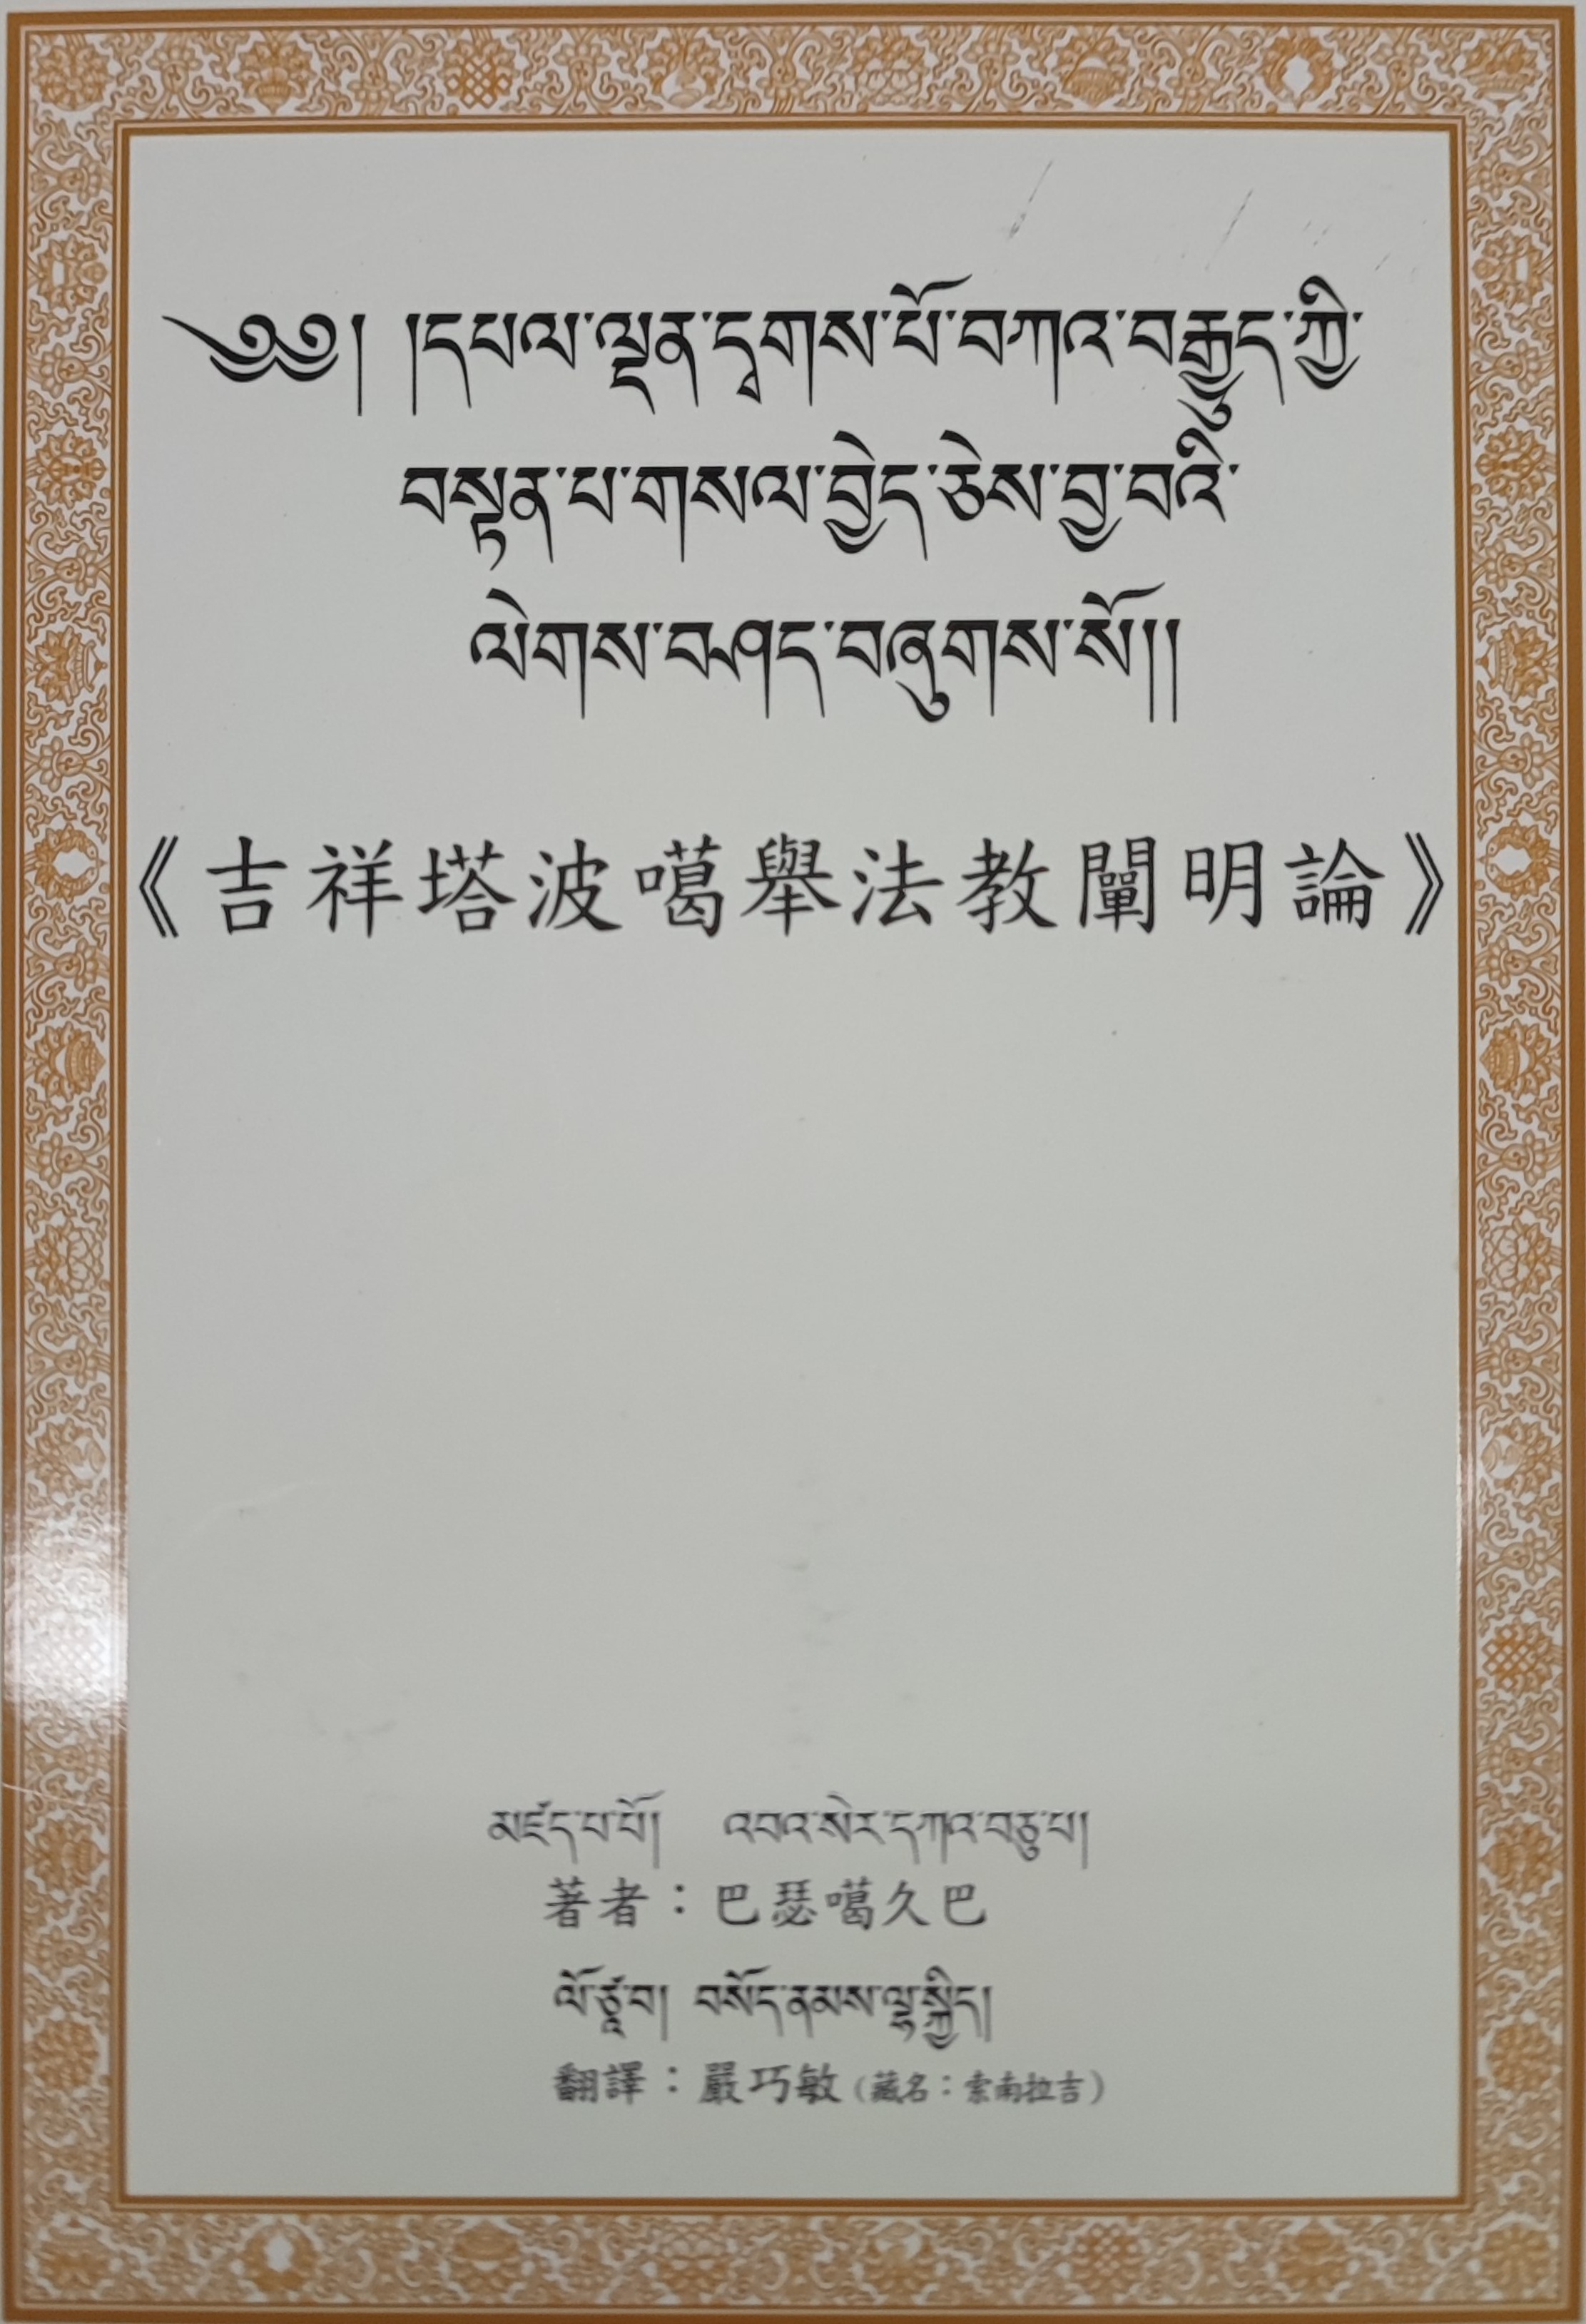 ༄༅། །དཔལ་ལྡན་དྭགས་པོ་བཀའ་བརྒྱུད་ཀྱི་
བསྟན་པ་གསལ་བྱེད་ཅེས་བྱ་བའི་
ལེགས་བཤད་བཞུགས་སོ།།
《吉祥塔波噶舉法教闡明論》
མཛད་པ་པོ། འབའ་སེར་དཀའ་བཅུ་པ།
著者：巴瑟噶久巴
ལོ་ཙཱ་བ། བསོད་ནམས་ལྷ་སྐྱིད།
翻譯：嚴巧敏（藏名：索南拉吉）